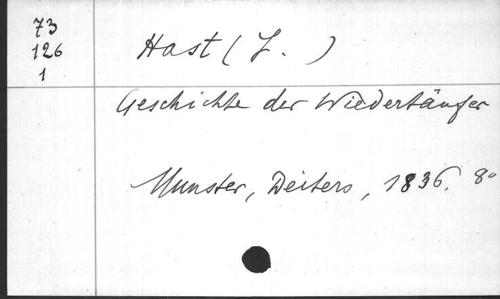 73
126
1
Hast (J. )
Geschichte der Wiedertäufer
Munster, Deiters, 1836. 8°